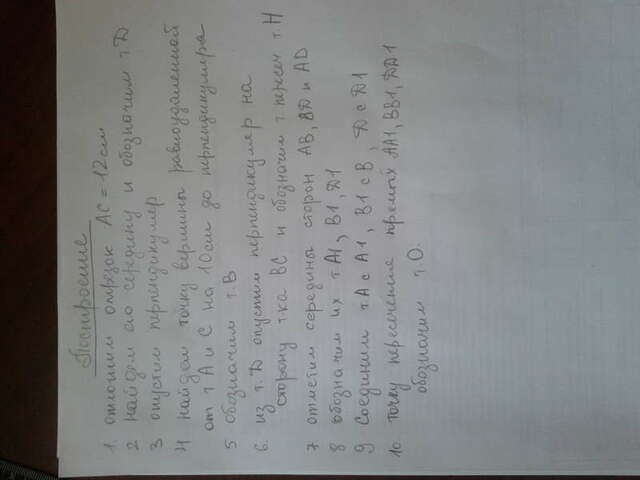 Построение
1. отложим отрезок AC = 12 см
2 найдем его середину и обозначим т. D
3 опустим перпендикуляр
4 найдем точку вершины равноудаленной
от т A и C на 10 см до перпендикуляра
5 обозначим т. B
6. из т. D опустим перпендикуляр на
сторону т-ка BC и обозначим т. пересеч т H
7 отметим середины сторон AB, BD и AD
8 обозначим их т A1, B1, D1
9 Соединим т A с A1, B1 с B, D с D1
10. точку пересечения прямых AA1, BB1, DD1
обозначим т O.